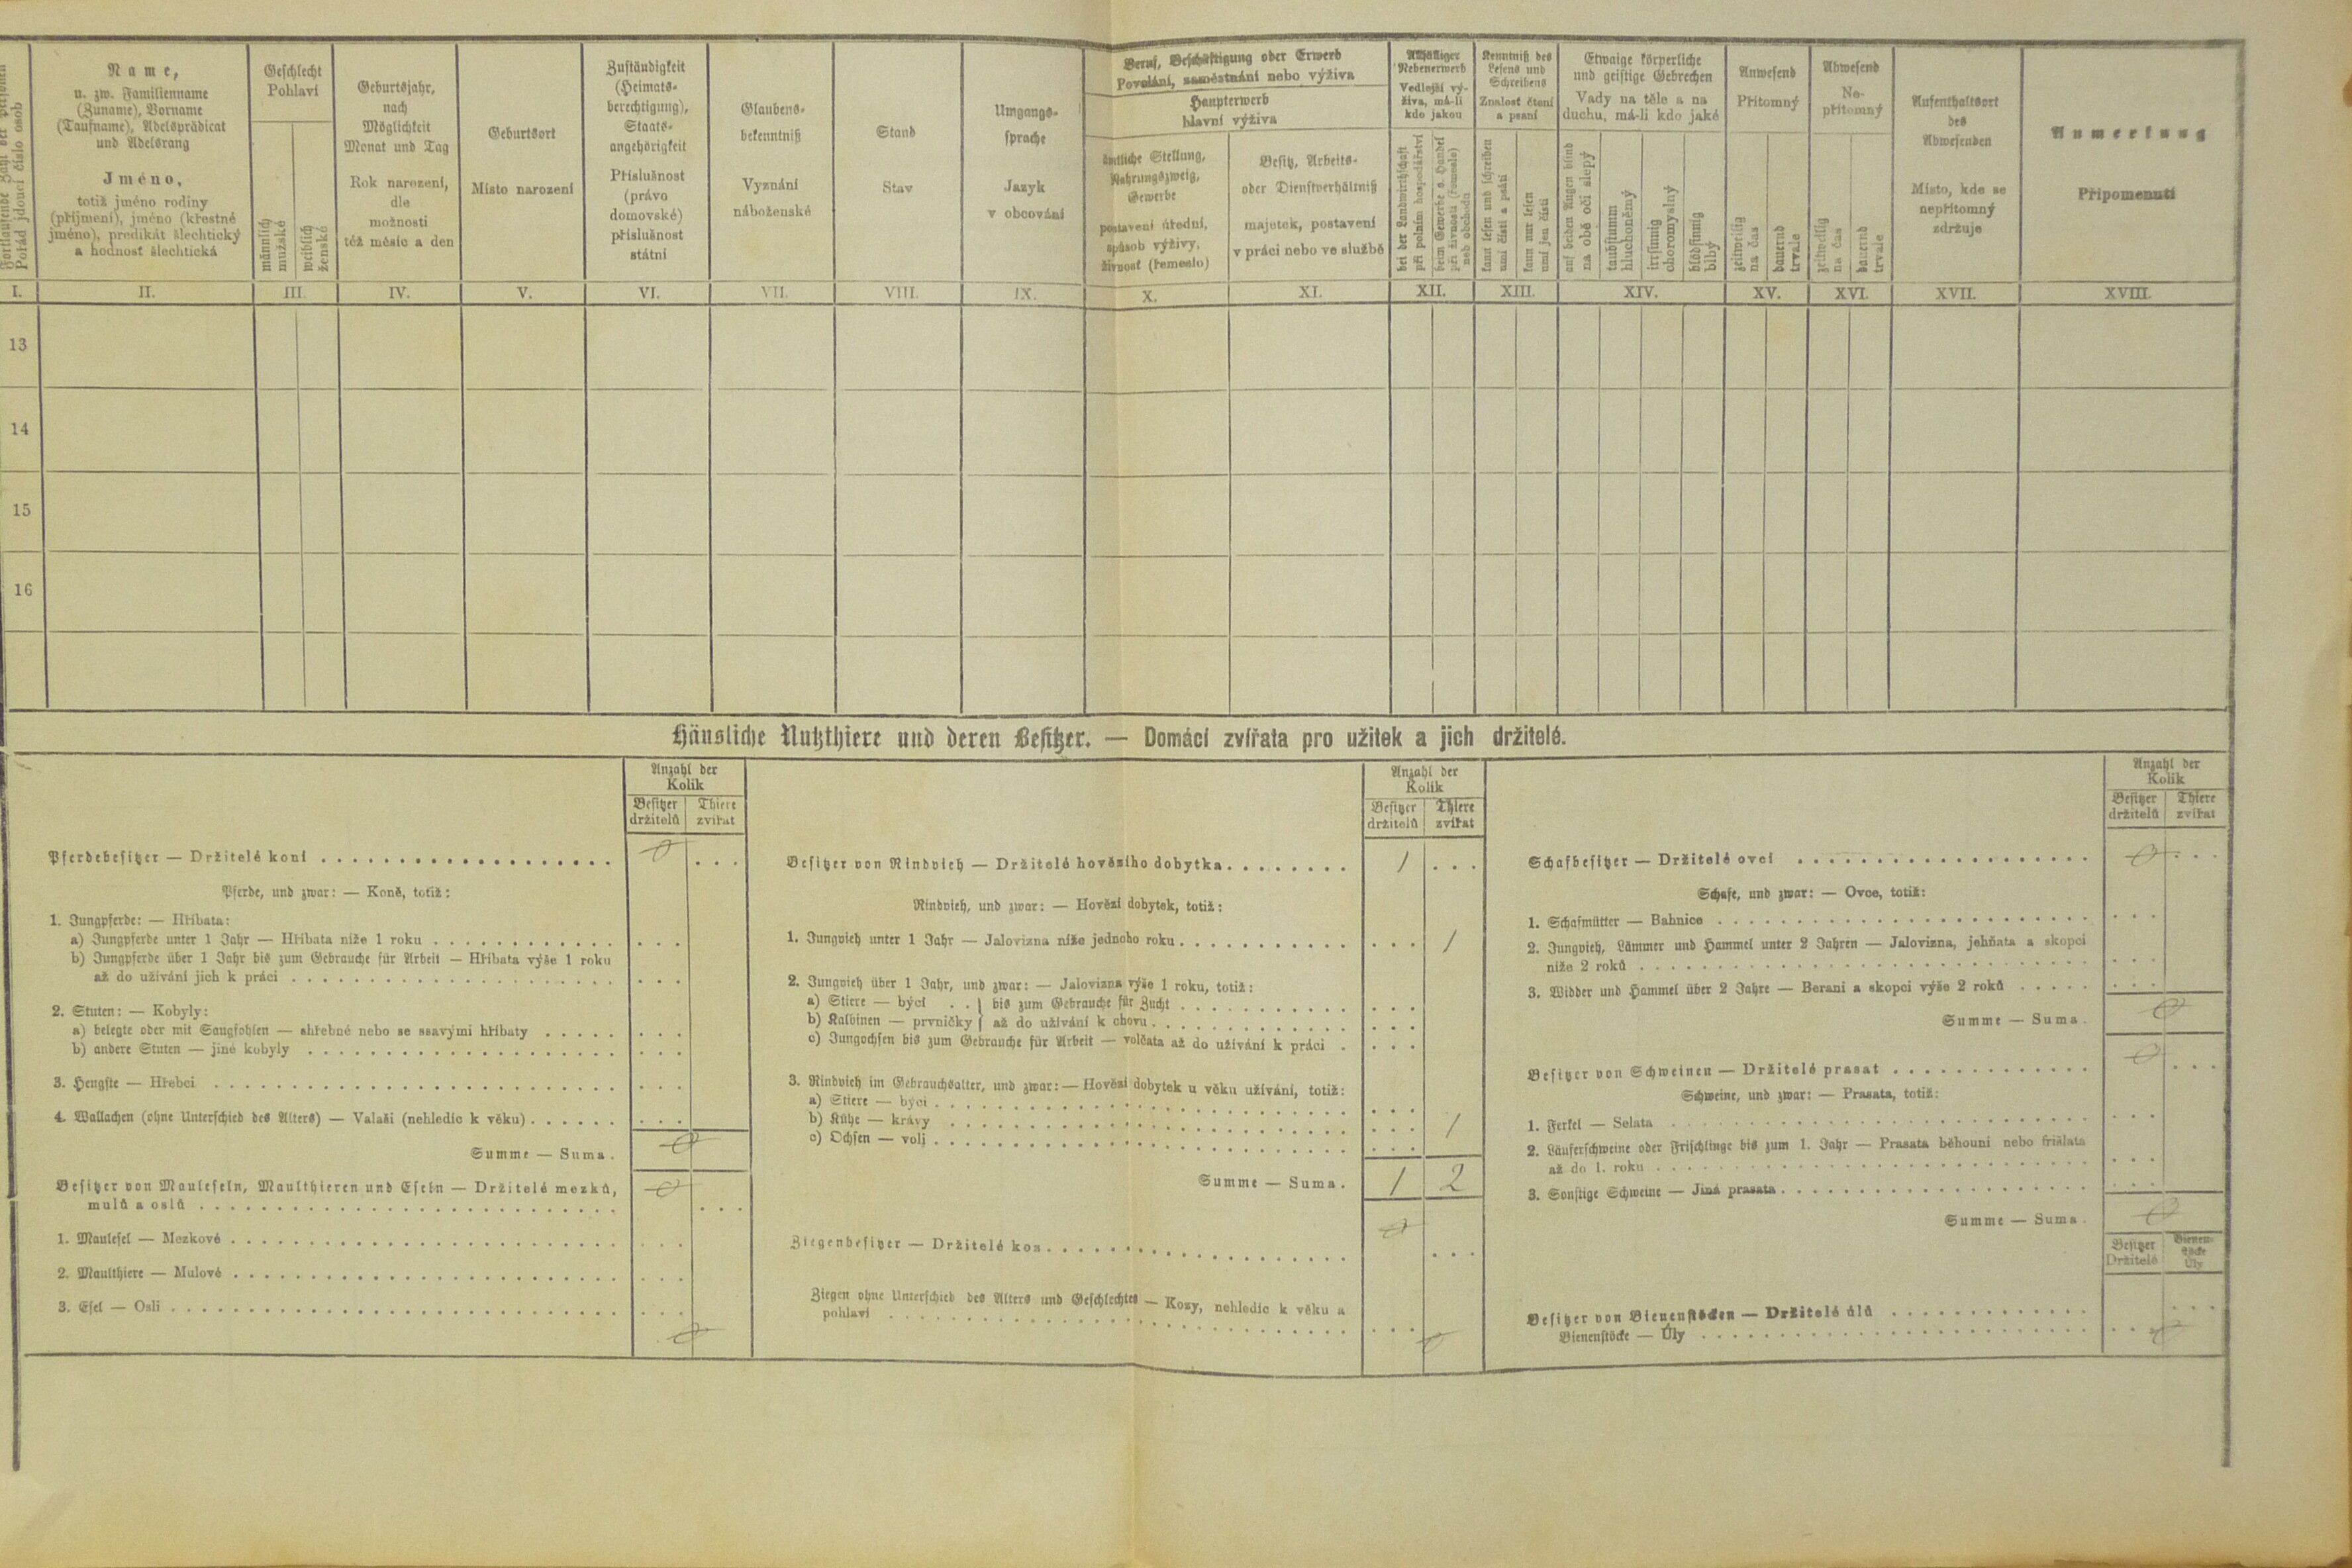 Fortlaufende Zahl der Personen
Pořád jdoucí číslo osob
Name,
u. zw. Familienname
(Zuname), Vorname
(Taufname), Adelsprädicat
und Adelsrang
Jméno,
totiž jméno rodiny
(příjmení), jméno (křestné
jméno), predikát šlechtický
a hodnosť šlechtická
Geschlecht
Pohlaví
männlich
mužské
weiblich
ženské
Geburtsjahr,
nach
Möglichkeit
Monat und Tag
Rok narození,
dle
možnosti
též měsíc a den
Geburtsort
Místo narození
Zuständigkeit
(Heimats-
berechtigung),
Staats-
angehörigkeit
Příslušnost
(právo
domovské)
příslušnost
státní
Glaubens-
bekenntniß
Vyznání
náboženské
Stand
Stav
Umgangs-
sprache
Jazyk
v obcování
Beruf, Beschäftigung oder Erwerb
Povolání, zaměstnání nebo výživa
Haupterwerb
hlavní výživa
ämtliche Stellung,
Nahrungszweig,
Gewerbe
postavení úřední,
způsob výživy,
živnosť (řemeslo)
Besitz, Arbeits-
oder Dienstverhältniß
majetek, postavení
v práci nebo ve službě
Allfälliger
Nebenerwerb
Vedlejší vý-
živa, má-li
kdo jakou
bei der Landwirthschaft
při polním hospodářství
beim Gewerbe o. Handel
při živnosti (řemesle)
neb obchodu
Kenntniß des
Lesens und
Schreibens
Znalosť čtení
a psaní
kann lesen und schreiben
umí čísti a psáti
kann nur lesen
umí jen čísti
Etwaige körperliche
und geistige Gebrechen
Vady na těle a na
duchu, má-li kdo jaké
auf beiden Augen blind
na obě oči slepý
taubstumm
hluchoněmý
irrsinnig
choromyslný
blödsinnig
blbý
Anwesend
Přítomný
zeitweilig
na čas
dauernd
trvale
Abwesend
Ne-
přítomný
zeitweilig
na čas
dauernd
trvale
Aufenthaltsort
des
Abwesenden
Místo, kde se
nepřítomný
zdržuje
Anmerkung
Připomenutí
I. II. III. IV. V. VI. VII. VIII. IX. X. XI. XII. XIII. XIV. XV. XVI. XVII. XVIII.
13
14
15
16
Häusliche Nutzthiere und deren Besitzer. — Domácí zvířata pro užitek a jich držitelé.
Anzahl der
Kolik
Besitzer
držitelů
Thiere
zvířat
Pferdebesitzer — Držitelé koní . . . 0
Pferde, und zwar: — Koně, totiž:
1. Jungpferde: — Hříbata:
a) Jungpferde unter 1 Jahr — Hříbata níže 1 roku
b) Jungpferde über 1 Jahr bis zum Gebrauche für Arbeit — Hříbata výše 1 roku
až do užívání jich k práci
2. Stuten: — Kobyly:
a) belegte oder mit Saugfohlen — shřebné nebo se ssavými hříbaty
b) andere Stuten — jiné kobyly
3. Hengste — Hřebci
4. Wallachen (ohne Unterschied des Alters) — Valaši (nehledíc k věku)
Summe — Suma. 0
Besitzer von Mauleseln, Maulthieren und Eseln — Držitelé mezků, 0
mulů a oslů
1. Maulesel — Mezkové
2. Maulthiere — Mulové
3. Esel — Osli
0
Anzahl der
Kolik
Besitzer
držitelů
Thiere
zvířat
Besitzer von Rindvieh — Držitelé hovězího dobytka. 1
Rindvieh, und zwar: — Hovězí dobytek, totiž:
1. Jungvieh unter 1 Jahr — Jalovizna níže jednoho roku. 1
2. Jungvieh über 1 Jahr, und zwar: — Jalovizna výše 1 roku, totiž:
a) Stiere — býci . . } bis zum Gebrauche für Zucht
b) Kalbinen — prvničky } až do užívání k chovu
c) Jungochsen bis zum Gebrauche für Arbeit — volčata až do užívání k práci
3. Rindvieh im Gebrauchsalter, und zwar: — Hovězí dobytek u věku užívání, totiž:
a) Stiere — býci
b) Kühe — krávy 1
c) Ochsen — voli
Summe — Suma. 1 2
Ziegenbesitzer — Držitelé koz. 0
Ziegen ohne Unterschied des Alters und Geschlechtes — Kozy, nehledíc k věku a
pohlaví 0
Anzahl der
Kolik
Besitzer
držitelů
Thiere
zvířat
Schafbesitzer — Držitelé ovcí 0
Schafe, und zwar: — Ovce, totiž:
1. Schafmütter — Bahnice
2. Jungvieh, Lämmer und Hammel unter 2 Jahren — Jalovizna, jehňata a skopci
níže 2 roků
3. Widder und Hammel über 2 Jahre — Berani a skopci výše 2 roků
Summe — Suma. 0
Besitzer von Schweinen — Držitelé prasat 0
Schweine, und zwar: — Prasata, totiž:
1. Ferkel — Selata
2. Läuferschweine oder Frischlinge bis zum 1. Jahr — Prasata běhouni nebo frišlata
až do 1. roku
3. Sonstige Schweine — Jiná prasata
Summe — Suma. 0
Besitzer
Držitelé
Bienen-
stöcke
Úly
Besitzer von Bienenstöcken — Držitelé úlů
Bienenstöcke — Úly 0